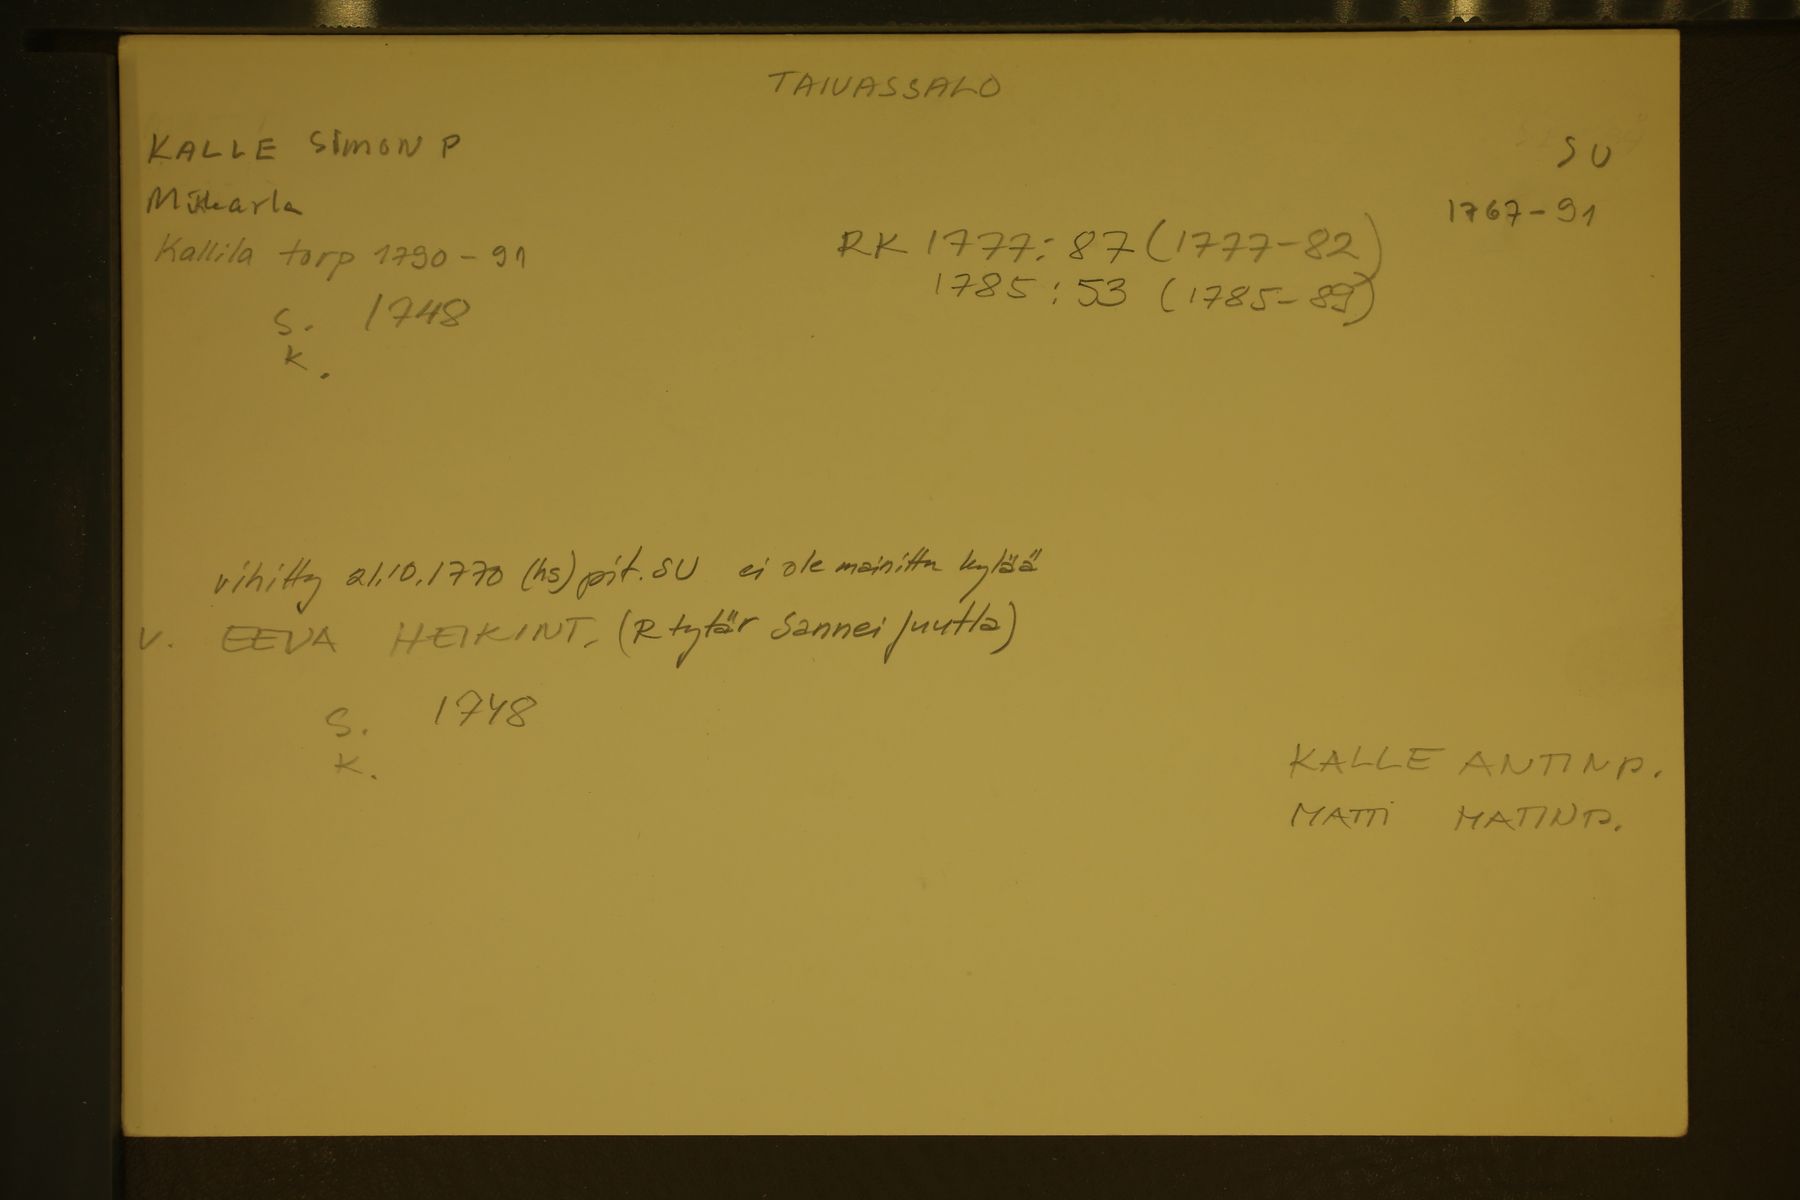 TAIVASSALO
KALLE SIMON P
SU
1767-91
Kallila torp 1790-91
RK 1777:87 (1777-82)
1785:53 (1785-89)
S. 1748
K.
vihitty 21.10.1770 (hs) pit. SU ei ole mainittu kylää
V. EEVA HEIKINT. (R tytär Sannei Juutla)
S. 1748
K.
KALLE ANTINP.
MATTI MATINP.